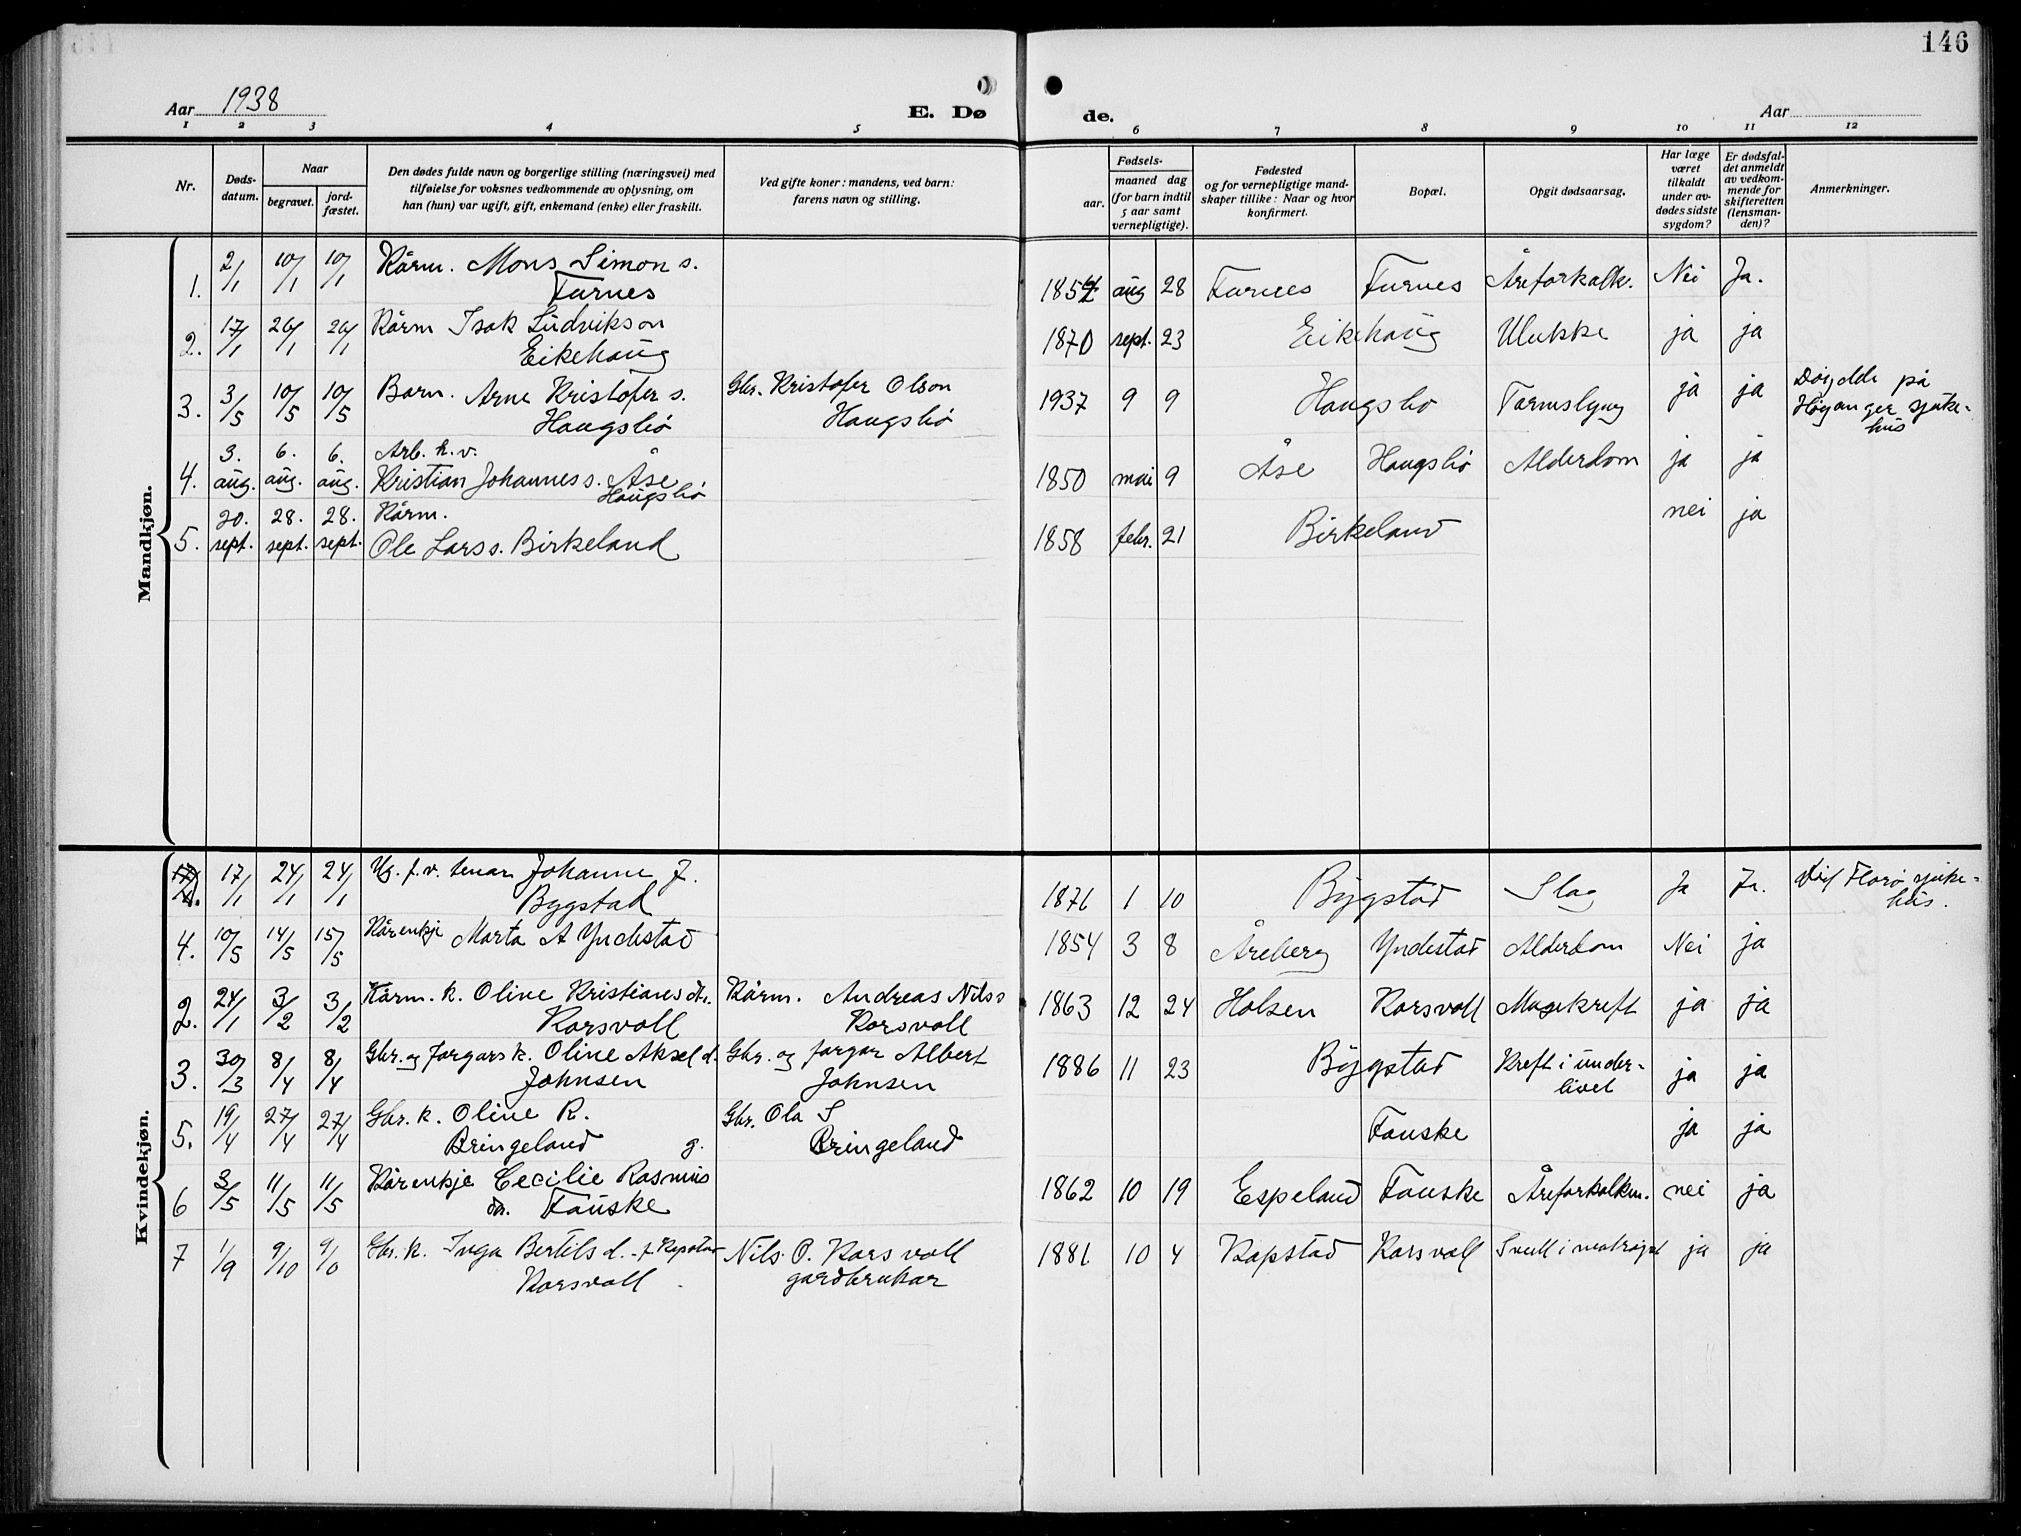 146
Aar 1938
E. Dø
de.
Aar
1 2 3 4 5 6 7 8 9 10 11 12
Nr.
Døds-
datum.
Naar
begravet.
jord-
fæstet.
Den dødes fulde navn og borgerlige stilling (næringsvei) med
tilføielse for voksnes vedkommende av oplysning, om
han (hun) var ugift, gift, enkemand (enke) eller fraskilt.
Ved gifte koner: mandens, ved barn:
farens navn og stilling.
Fødsels-
aar.
maaned dag
(for barn indtil
5 aar samt
vernepligtige).
Fødested
og for vernepligtige mand-
skaper tillike: Naar og hvor
konfirmert.
Bopæl.
Opgit dødsaarsag.
Har læge
været
tilkaldt
under av-
dødes sidste
sygdom?
Er dødsfal-
det anmeldt
av vedkom-
mende for
skifteretten
(lensman-
den)?
Anmerkninger.
Mandkjøn.
1. 2/1 10/1 10/1 Kårm. Mons Simon s.
Furnes
aug 28 Furnes Furnes Åreforkalk. Nei Ja.
2. 17/1 26/1 26/1 Kårm Isak Ludvikson
Eikehaug
1870 sept. 23 Eikehaug Ulukke ja ja
3. 3/5 10/5 10/5 Barn. Arne Kristofer s. Gbr. Kristofer Olson
Haugsbø Haugsbø
1937 9 9 Haugsbø Tarmslyng ja ja Døydde på
Høyanger sjuke-
hus
4. 3. aug. 6. aug. 6. aug. Arb. k.v.
Kristian Johannes s. Åse
Haugsbø
1850 mai 9 Åse Haugsbø Alderdom ja ja
5. 20. sept. 28. sept. 28. sept. Kårm.
Ole Lars s. Birkeland
1858 febr. 21 Birkeland nei ja
Kvindekjøn.
17/1 24/1 24/1 Ug. f.v. tenar Johanne J.
Bygstad
1871 1 10 Bygstad Slag Ja Ja. Florø sjuke-
hus.
4. 10/5 14/5 15/5 Kårenkje Marta A Yndestad
1854 3 8 Åreberg Yndestad Alderdom Nei ja
2. 24/1 3/2 3/2 Kårm. k. Oline Kristianes dtr. Kårm. Andreas Nils s
Korsvoll Korsvoll
1863 12 24 Holsen Korsvoll Magekreft ja ja
3. 30/3 8/4 8/4 Gbr. og fargars k. Oline Aksel d. Gbr. og fargar Albert
Johnsen Johnsen
1886 11 23 Bygstad Kreft i under-
livet ja ja
5. 19/4 27/4 27/4 Gbr. k. Oline R. Gbr. Ola S
Bringeland g. Bringeland
Fauske ja ja
6 3/5 11/5 11/5 Kårenkje Cecilie Rasmus
dtr. Fauske
1862 10 19 Espeland Fauske Åreforkalkn. nei ja
7 1/9 9/10 9/10 Gbr. k. Inga Bertils d. f. Kapstad Nils O. Korsvoll
Korsvoll gardbrukar
1881 10 4 Kapstad Korsvoll ja ja